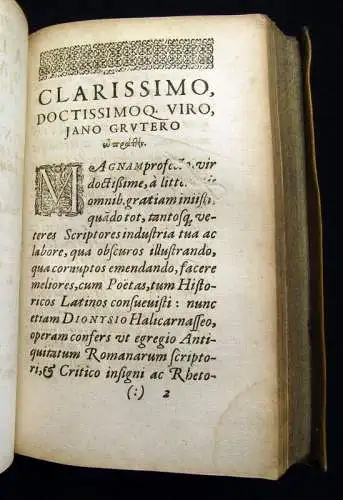 CLARISSIMO,
DOCTISSIMOQ. VIRO,
JANO GRVTERO
MAGNAM profectò, vir
doctißime, à litte
omnib. gratiam iniisti,
quãdo tot, tantosq, ve-
teres Scriptores industria tua ac
labore, qua obscuros illustrando,
qua corruptos emendando, facere
meliores, cum Poëtas, tum Histo-
ricos Latinos consuevisti: nunc
etiam DIONYSIO Halicarnasseo,
operam confers ut egregio Anti-
quitatum Romanarum scripto-
ri, & Critico insigni ac Rheto-
(:) 2